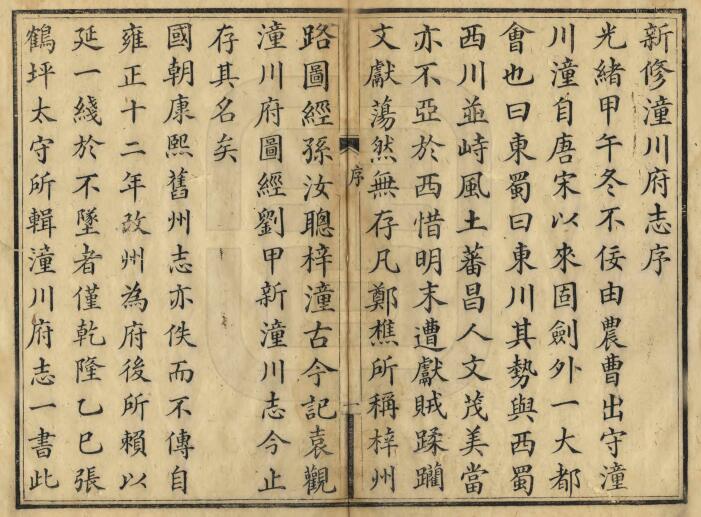 新修潼川府志序
光緒甲午冬不佞由農曹出守潼
川潼自唐宋以來固劍外一大都
會也曰東蜀曰東川其勢與西蜀
西川並峙風土蕃昌人文茂美當
亦不亞於西惜明末遭獻賊蹂躪
文獻蕩然無存凡鄭樵所稱梓州
序
一
路圖經孫汝聰梓潼古今記袁觀
潼川府圖經劉甲新潼川志今止
存其名矣
國朝康熙舊州志亦佚而不傳自
雍正十二年改州為府後所賴以
延一綫於不墜者僅乾隆乙巳張
鶴坪太守所輯潼川府志一書此